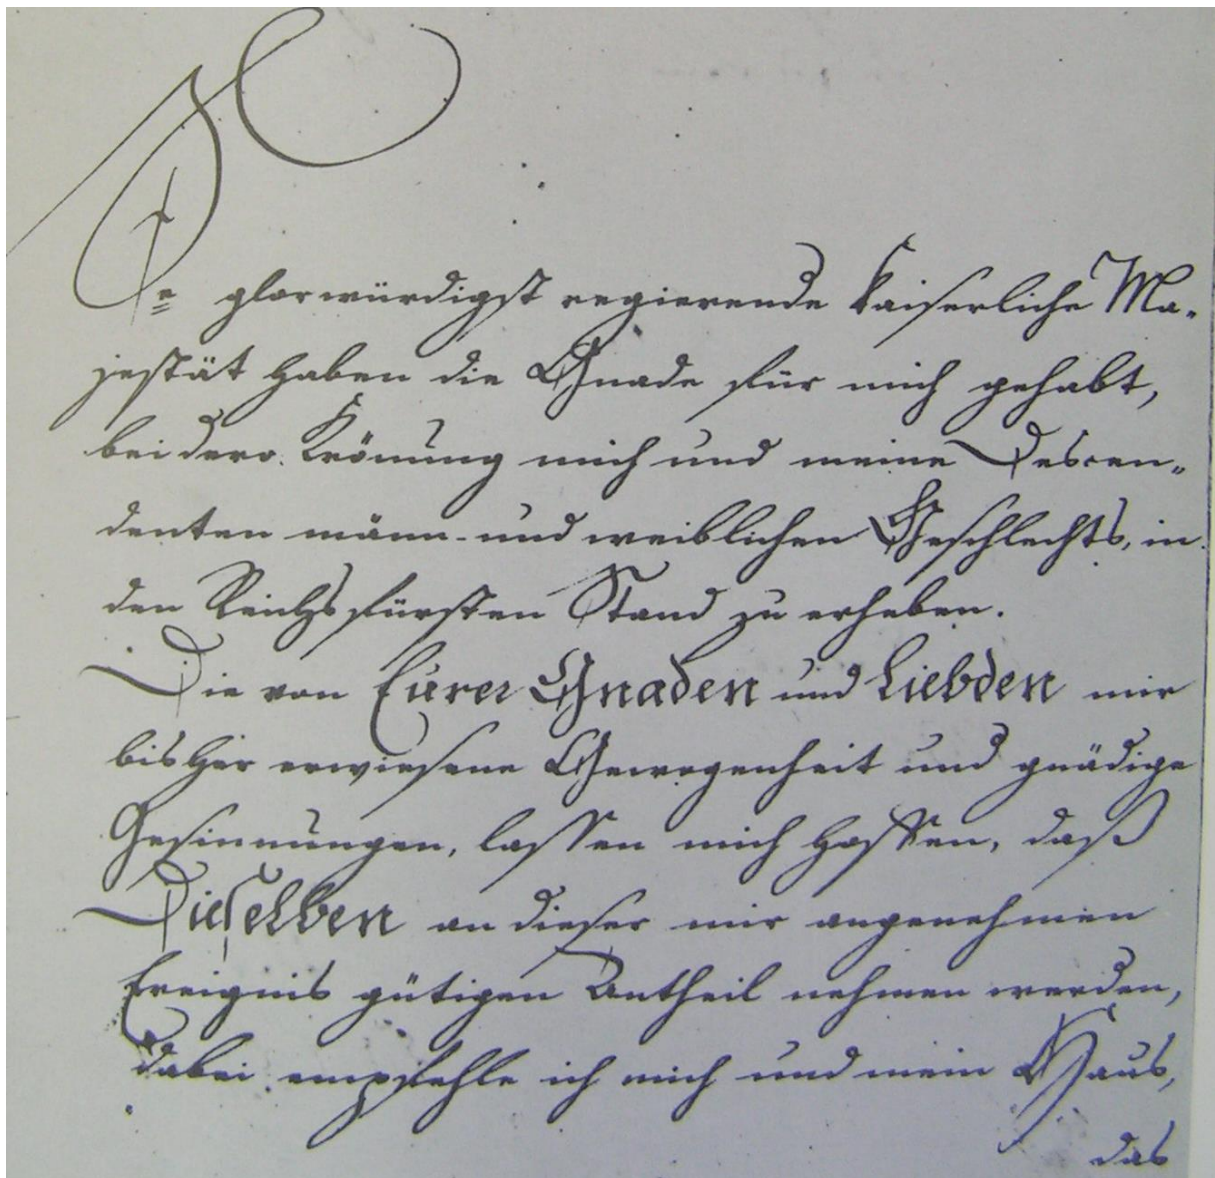 Se glorwürdigst regierende Kaiserliche Ma-
jestät haben die Gnade für mich gehabt,
bei dero Krönung mich und meine Descen-
denten männ- und weiblichen Geschlechts, in
den Reichsfürsten Stand zu erheben.
Die von Eurer Gnaden und Liebden mir
bisher erwiesene Gewogenheit und gnädige
Gesinnungen, lassen mich hoffen, daß
Dieselben an dieser mir angenehmen
Ereignis gütigen Antheil nehmen werden,
dabei empfehle ich mich und mein Haus,
das